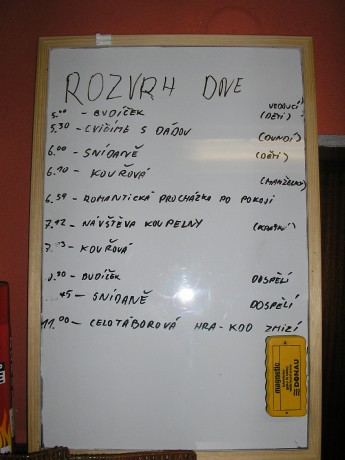 ROZVRH DNE
VEDOUCÍ
5.00 - BUDÍČEK (DĚTI)
5.30 - CVIČÍME S DÁDOU (DUNDÍ)
6.00 - SNÍDANĚ (DĚTI)
6.10 - KOUŘOVÁ (MANŽELKY)
6.59 - ROMANTICKÁ PROCHÁZKA PO POKOJI
7.12 - NÁVŠTĚVA KOUPELNY
7.13 - KOUŘOVÁ
BUDÍČEK DOSPĚLÍ
45 - SNÍDANĚ DOSPĚLÍ
11.00 - CELOTÁBOROVÁ HRA - KDO ZMIZÍ
magnetic
DONAU